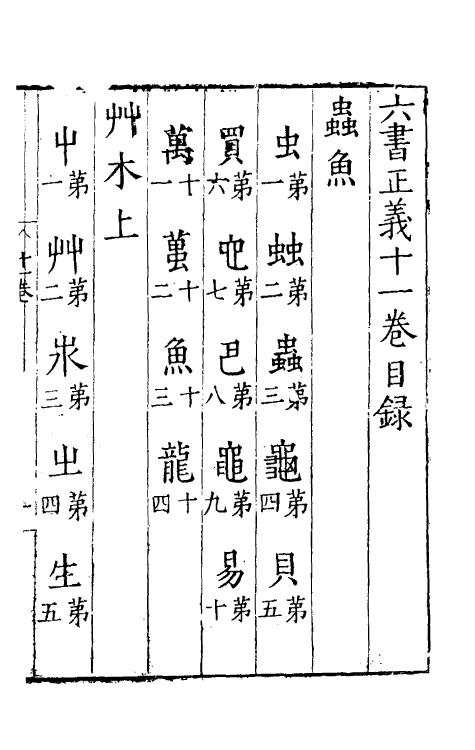 六書正義十一卷目録
蟲魚
虫第一 䖵第二 蟲第三 龜第四 貝第五
買第六 它第七 巴第八 黽第九 易第十
萬十一 䖝十二 魚十三 龍十四
艸木上
屮第一 艸第二 第三 㞢第四 生第五